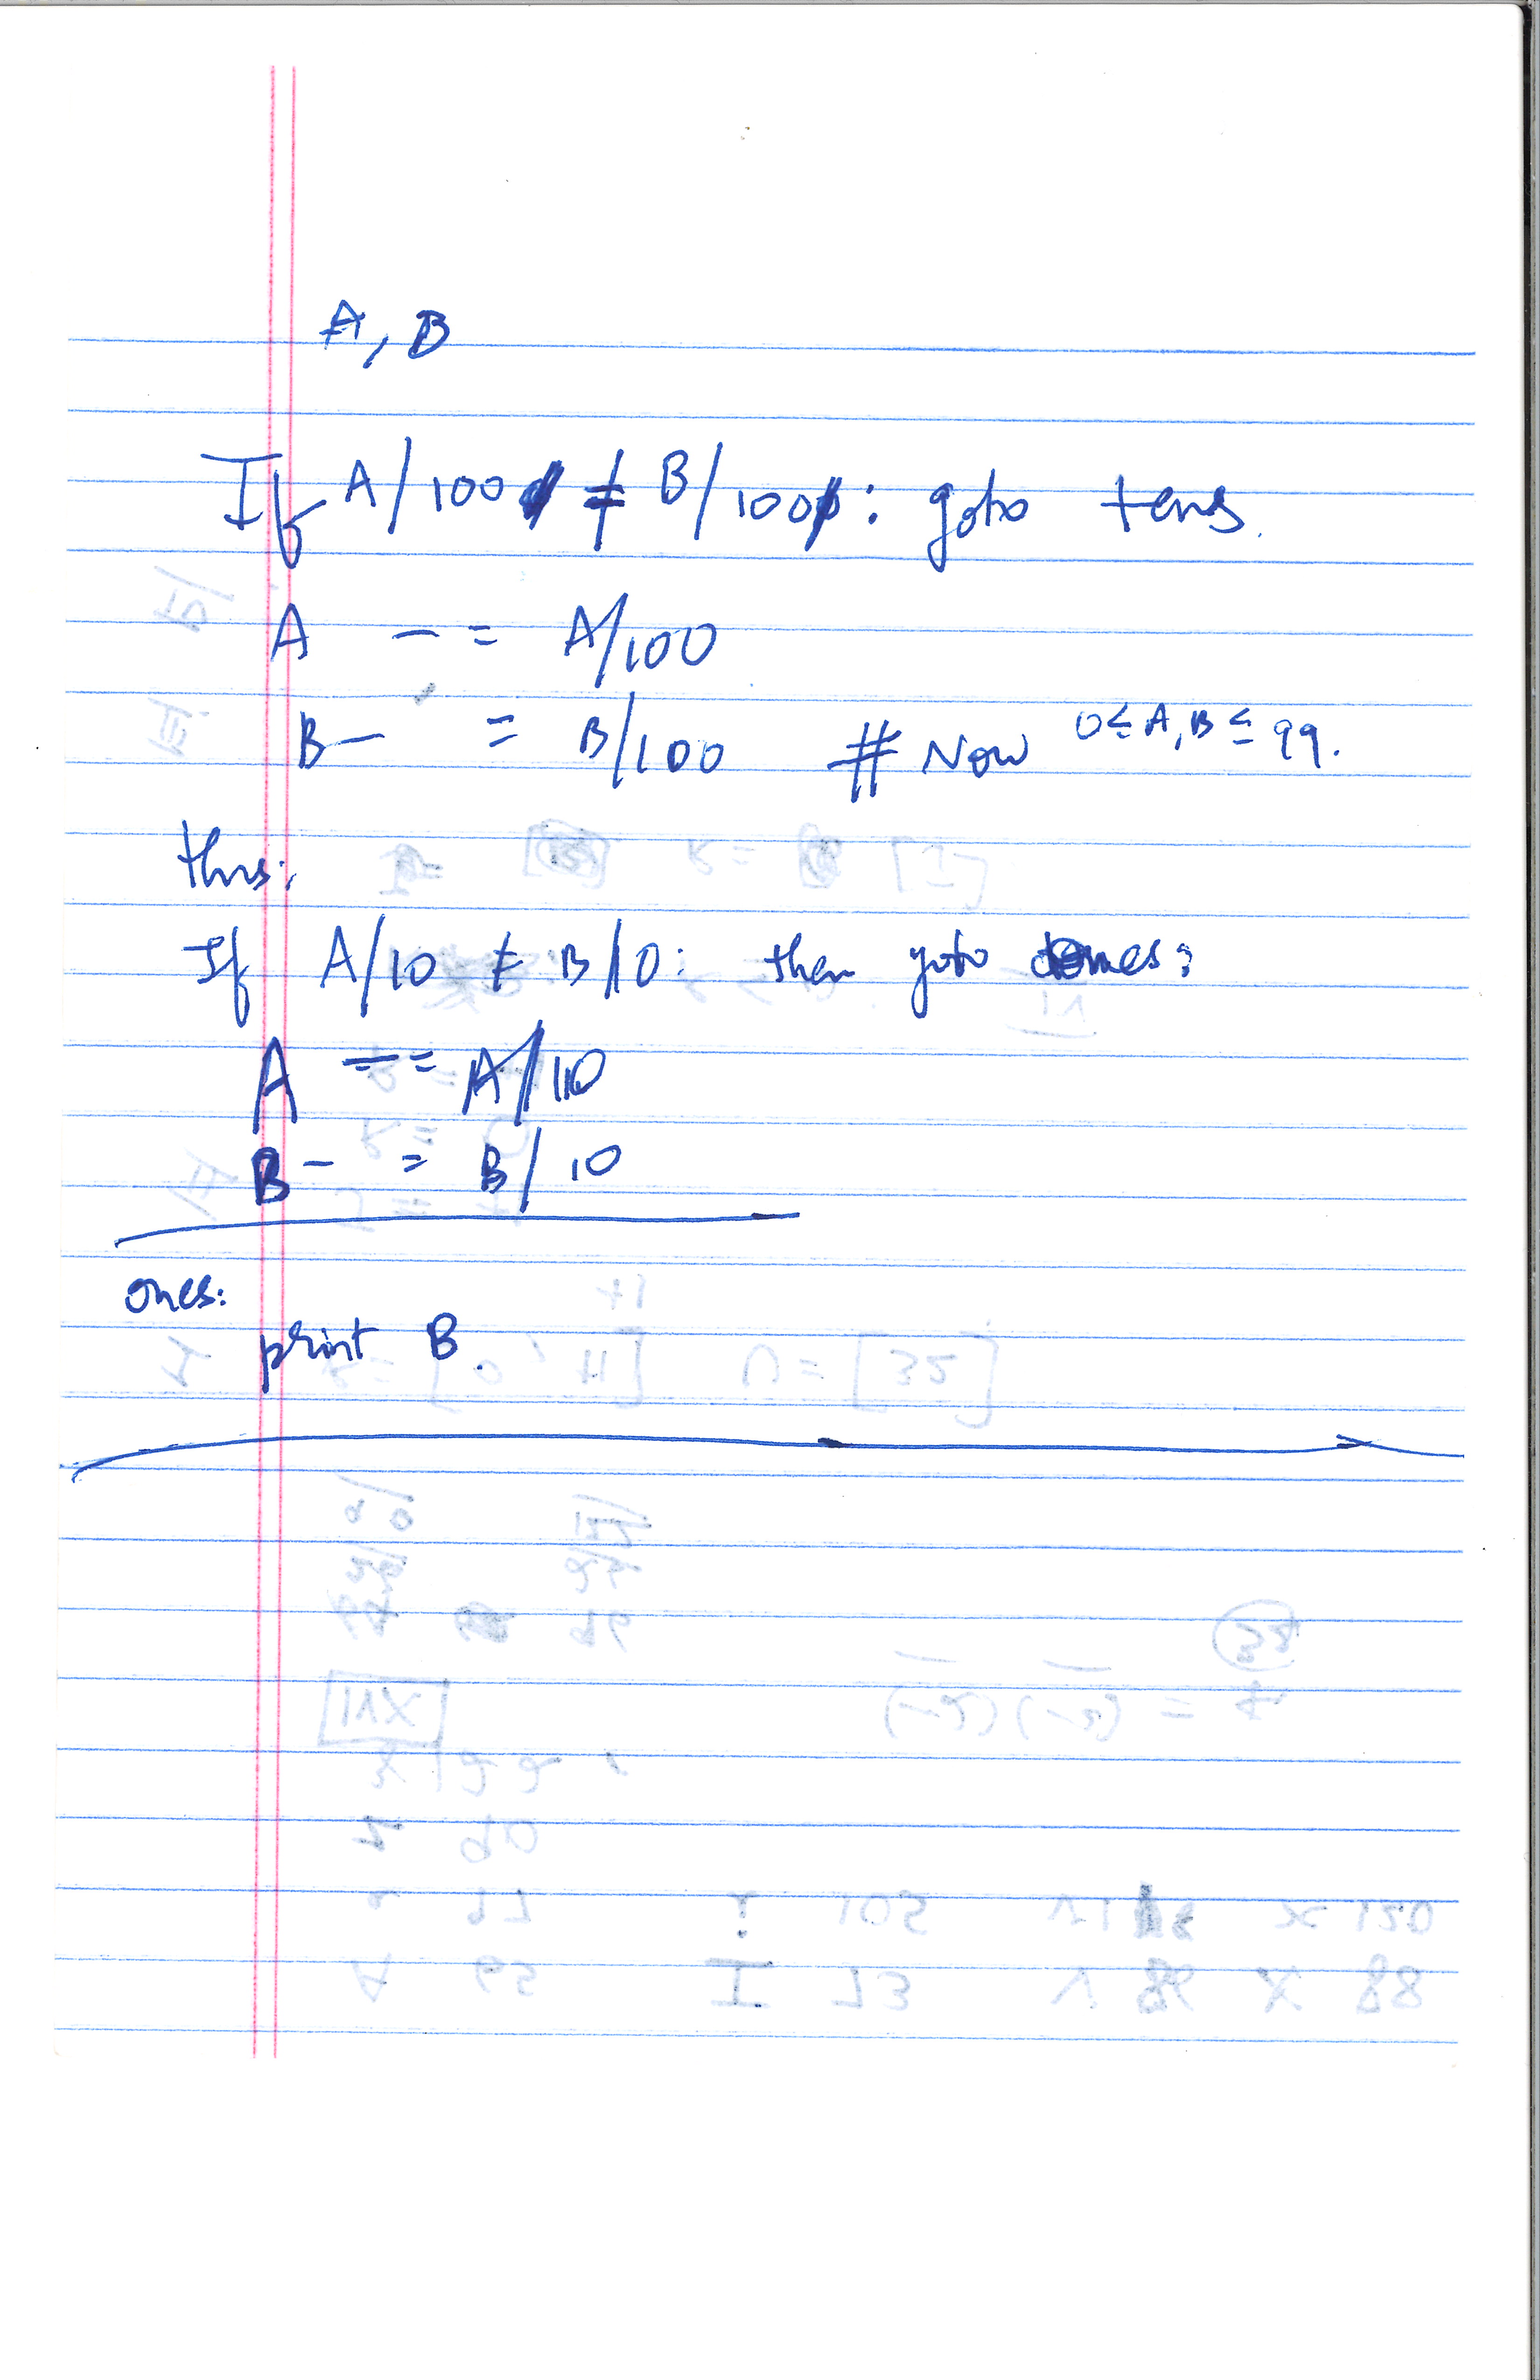 A, B
If A/100 ≠ B/100: goto tens.
A -= A/100
B -= B/100 # Now 0≤A,B≤99.
If A/10 ≠ B/10: then goto ones:
A -= A/10
B -= B/10
ones:
print B.